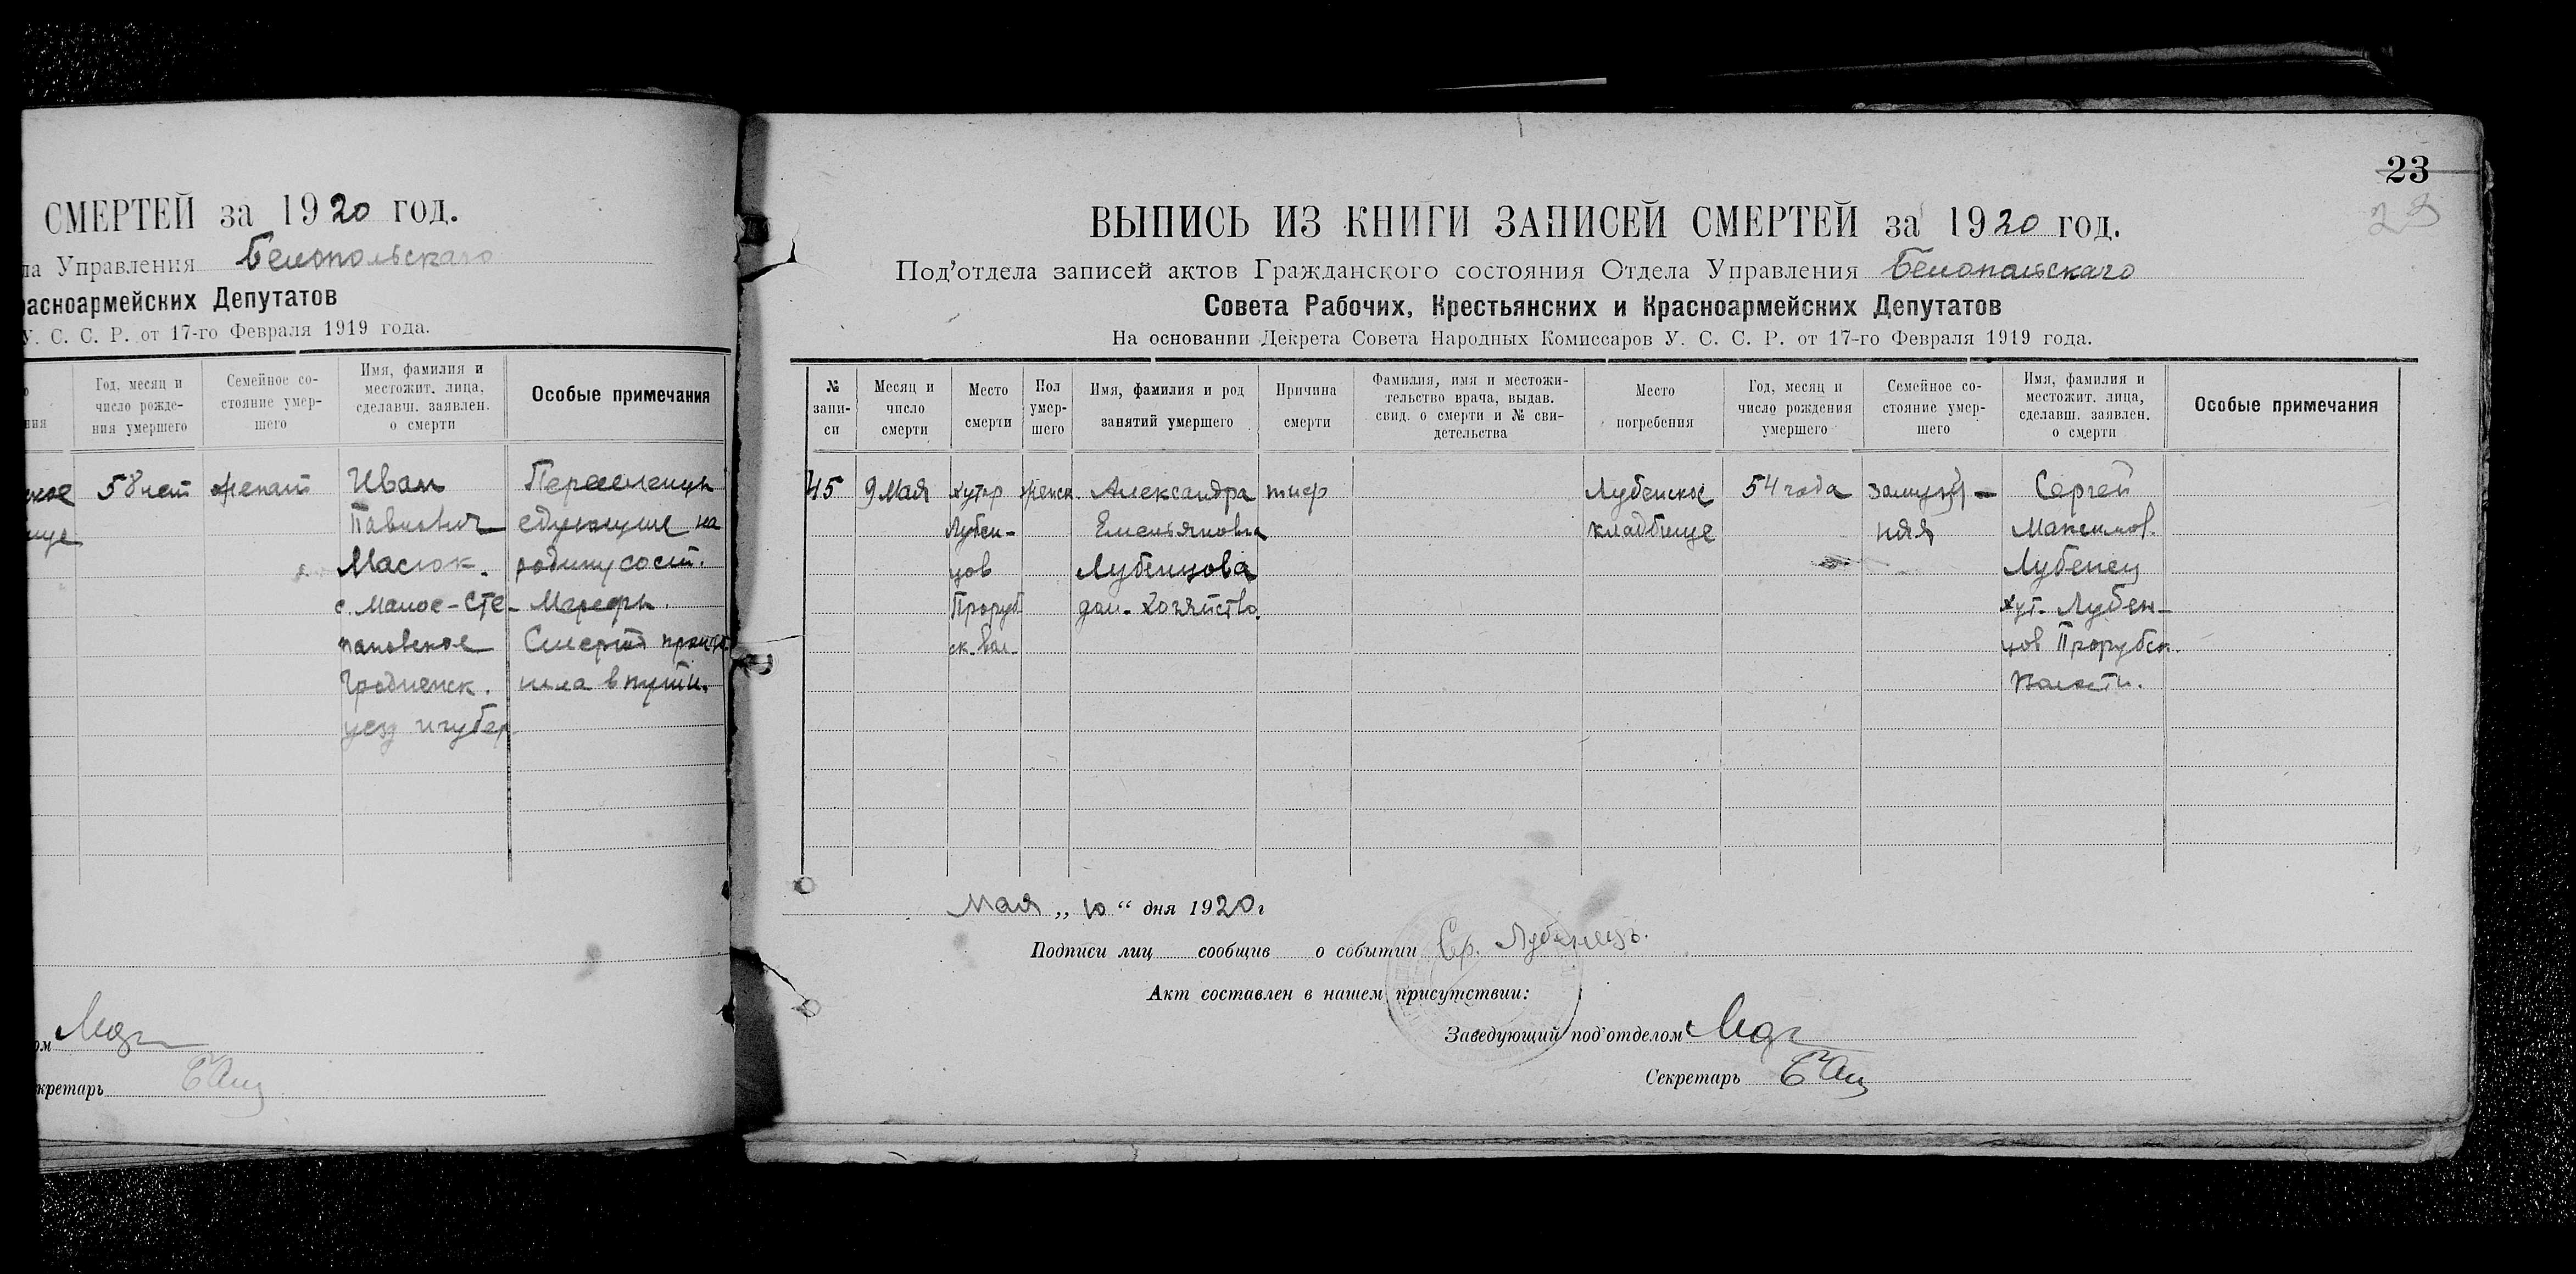 СМЕРТЕЙ за 1920 год.
ла Управления Белопольскаго
расноармейских Депутатов
У. С. С. Р. от 17-го Февраля 1919 года.
Год, месяц и
число рожде-
ния умершего
Семейное со-
стояние умер-
шего
Имя, фамилия и
местожит. лица,
сделавш. заявлен.
о смерти
Особые примечания
58 лет
женат
Иван
Павлович
Масюк.
с. Малое-Сте-
пановское
Гродненск.
уезд и губер.
едующие на
родину сост.
Мерефы.
Смерть
в пути.
кретарь
23
ВЫПИСЬ ИЗ КНИГИ ЗАПИСЕЙ СМЕРТЕЙ за 1920 год.
Под'отдела записей актов Гражданского состояния Отдела Управления Белопольскаго
Совета Рабочих, Крестьянских и Красноармейских Депутатов
На основании Декрета Совета Народных Комиссаров У. С. С. Р. от 17-го Февраля 1919 года.
№
запи-
си
Месяц и
число
смерти
Место
смерти
Пол
умер-
шего
Имя, фамилия и род
занятий умершего
Причина
смерти
Фамилия, имя и местожи-
тельство врача, выдав.
свид. о смерти и № сви-
детельства
Место
погребения
Год, месяц и
число рождения
умершего
Семейное со-
стояние умер-
шего
Имя, фамилия и
местожит. лица,
сделавш. заявлен.
о смерти
Особые примечания
45
9 Мая
Хутор
Лубен-
цов
Проруб
ск. вол.
женск.
Александра
Емельяновна
Лубенцова
дом. хозяйство.
тиф
Лубенское
кладбище
54 года
замуж-
няя
Сергей
Максимов.
Лубенец
хут. Лубен-
цов Прорубск.
волости.
Мая „ 10 “ дня 1920 г
Подписи лиц сообщив о событии Ср. Лубенецъ.
Акт составлен в нашем присутствии:
Заведующий под'отделом
Секретарь